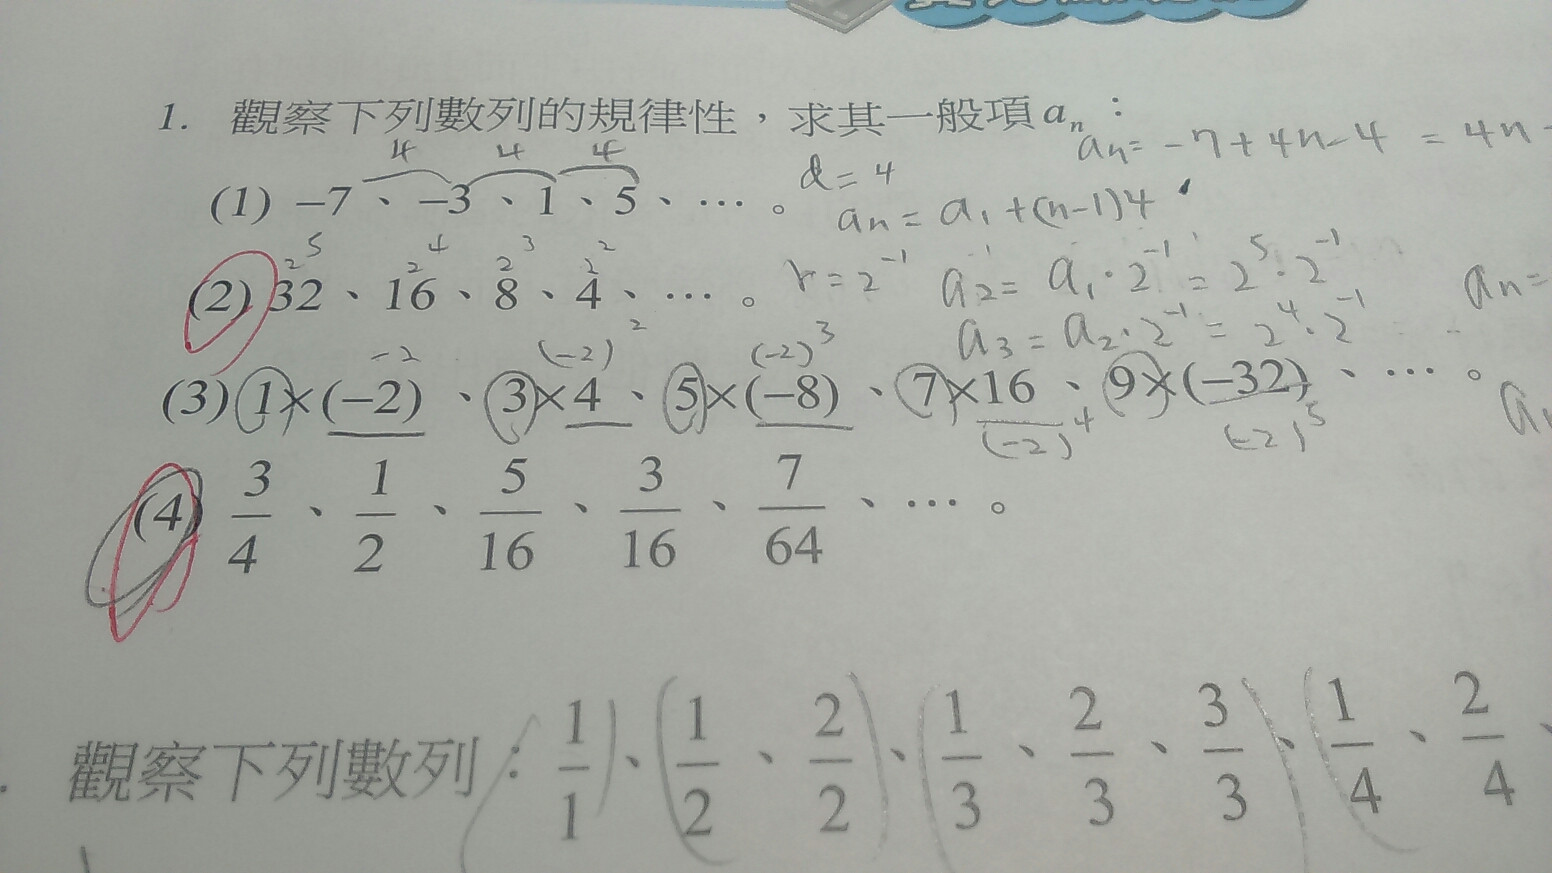 1. 觀察下列數列的規律性，求其一般項 aₙ：
aₙ = -7 + 4n - 4 = 4n -
4 4 4
(1) -7、-3、1、5、…。
d = 4
aₙ = a₁ + (n-1)4
2⁵ 2⁴ 2³ 2²
(2) 32、16、8、4、…。
r = 2⁻¹ a₂ = a₁·2⁻¹ = 2⁵·2⁻¹
aₙ =
a₃ = a₂·2⁻¹ = 2⁴·2⁻¹
-2 (-2)² (-2)³
(3) 1×(-2)、3×4、5×(-8)、7×16、9×(-32)、…。
(-2)⁴ (-2)⁵
(4) 3/4、1/2、5/16、3/16、7/64、…。
觀察下列數列：(1/1)、(1/2、2/2)、(1/3、2/3、3/3)、(1/4、2/4、